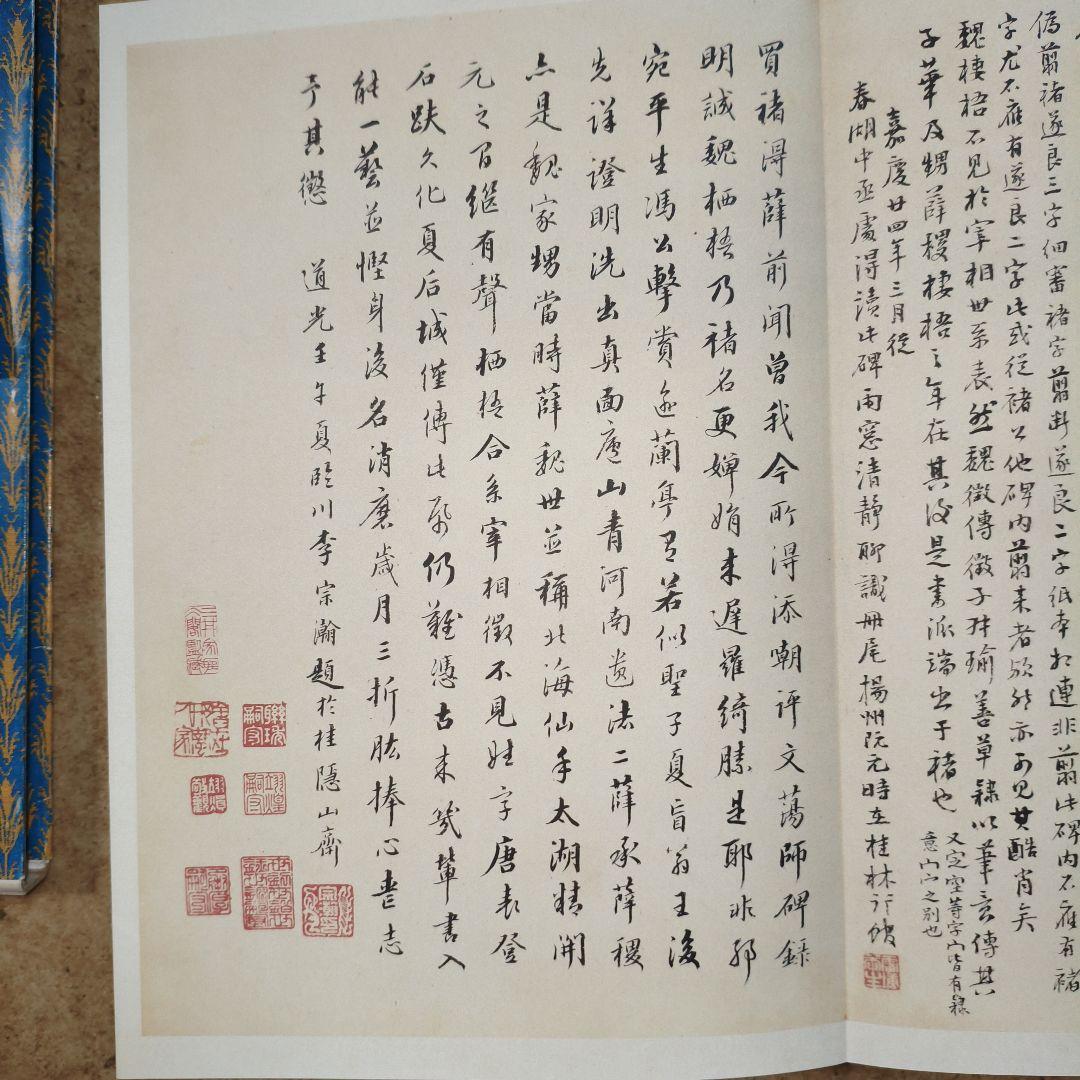 偽翦褚遂良三字細審褚字翦斷遂良二字紙本相連非翦此碑內不應有褚
字尤不應有遂良二字此或從褚公他碑內翦來者歟然亦可見其酷肖矣
魏棲梧不見於宰相世系表然魏徵傳徵子叔瑜善草隸以筆意傳其
子華及甥薛稷棲梧之年在其後是書派端出于褚也
又定空等字宀皆有隸
意宀宀之別也
嘉慶廿四年三月從
春湖中丞處得讀此碑雨窓清靜聊識冊尾揚州阮元時在桂林行館
買褚得薛前聞曾我今所得添嘲評文蕩師碑錄
明誠魏栖梧乃褚名更嬋娟來遲羅綺勝是耶非耶
宛平生馮公擊賞逾蘭亭有若似聖子夏盲翁王後
先詳證明洗出真面廬山青河南遺法二薛承薛稷
亦是魏家甥當時薛魏世並稱北海仙手太湖精開
元之間繼有聲栖梧合系宰相徵不見姓字唐表登
石趺久化夏后城僅傳此ﾠ仍難憑古來幾輩書入
能一藝並慳身後名消磨歲月三折肱捧心ﾠ志
ﾠ其懲 道光壬午夏臨川李宗瀚題於桂隱山齋